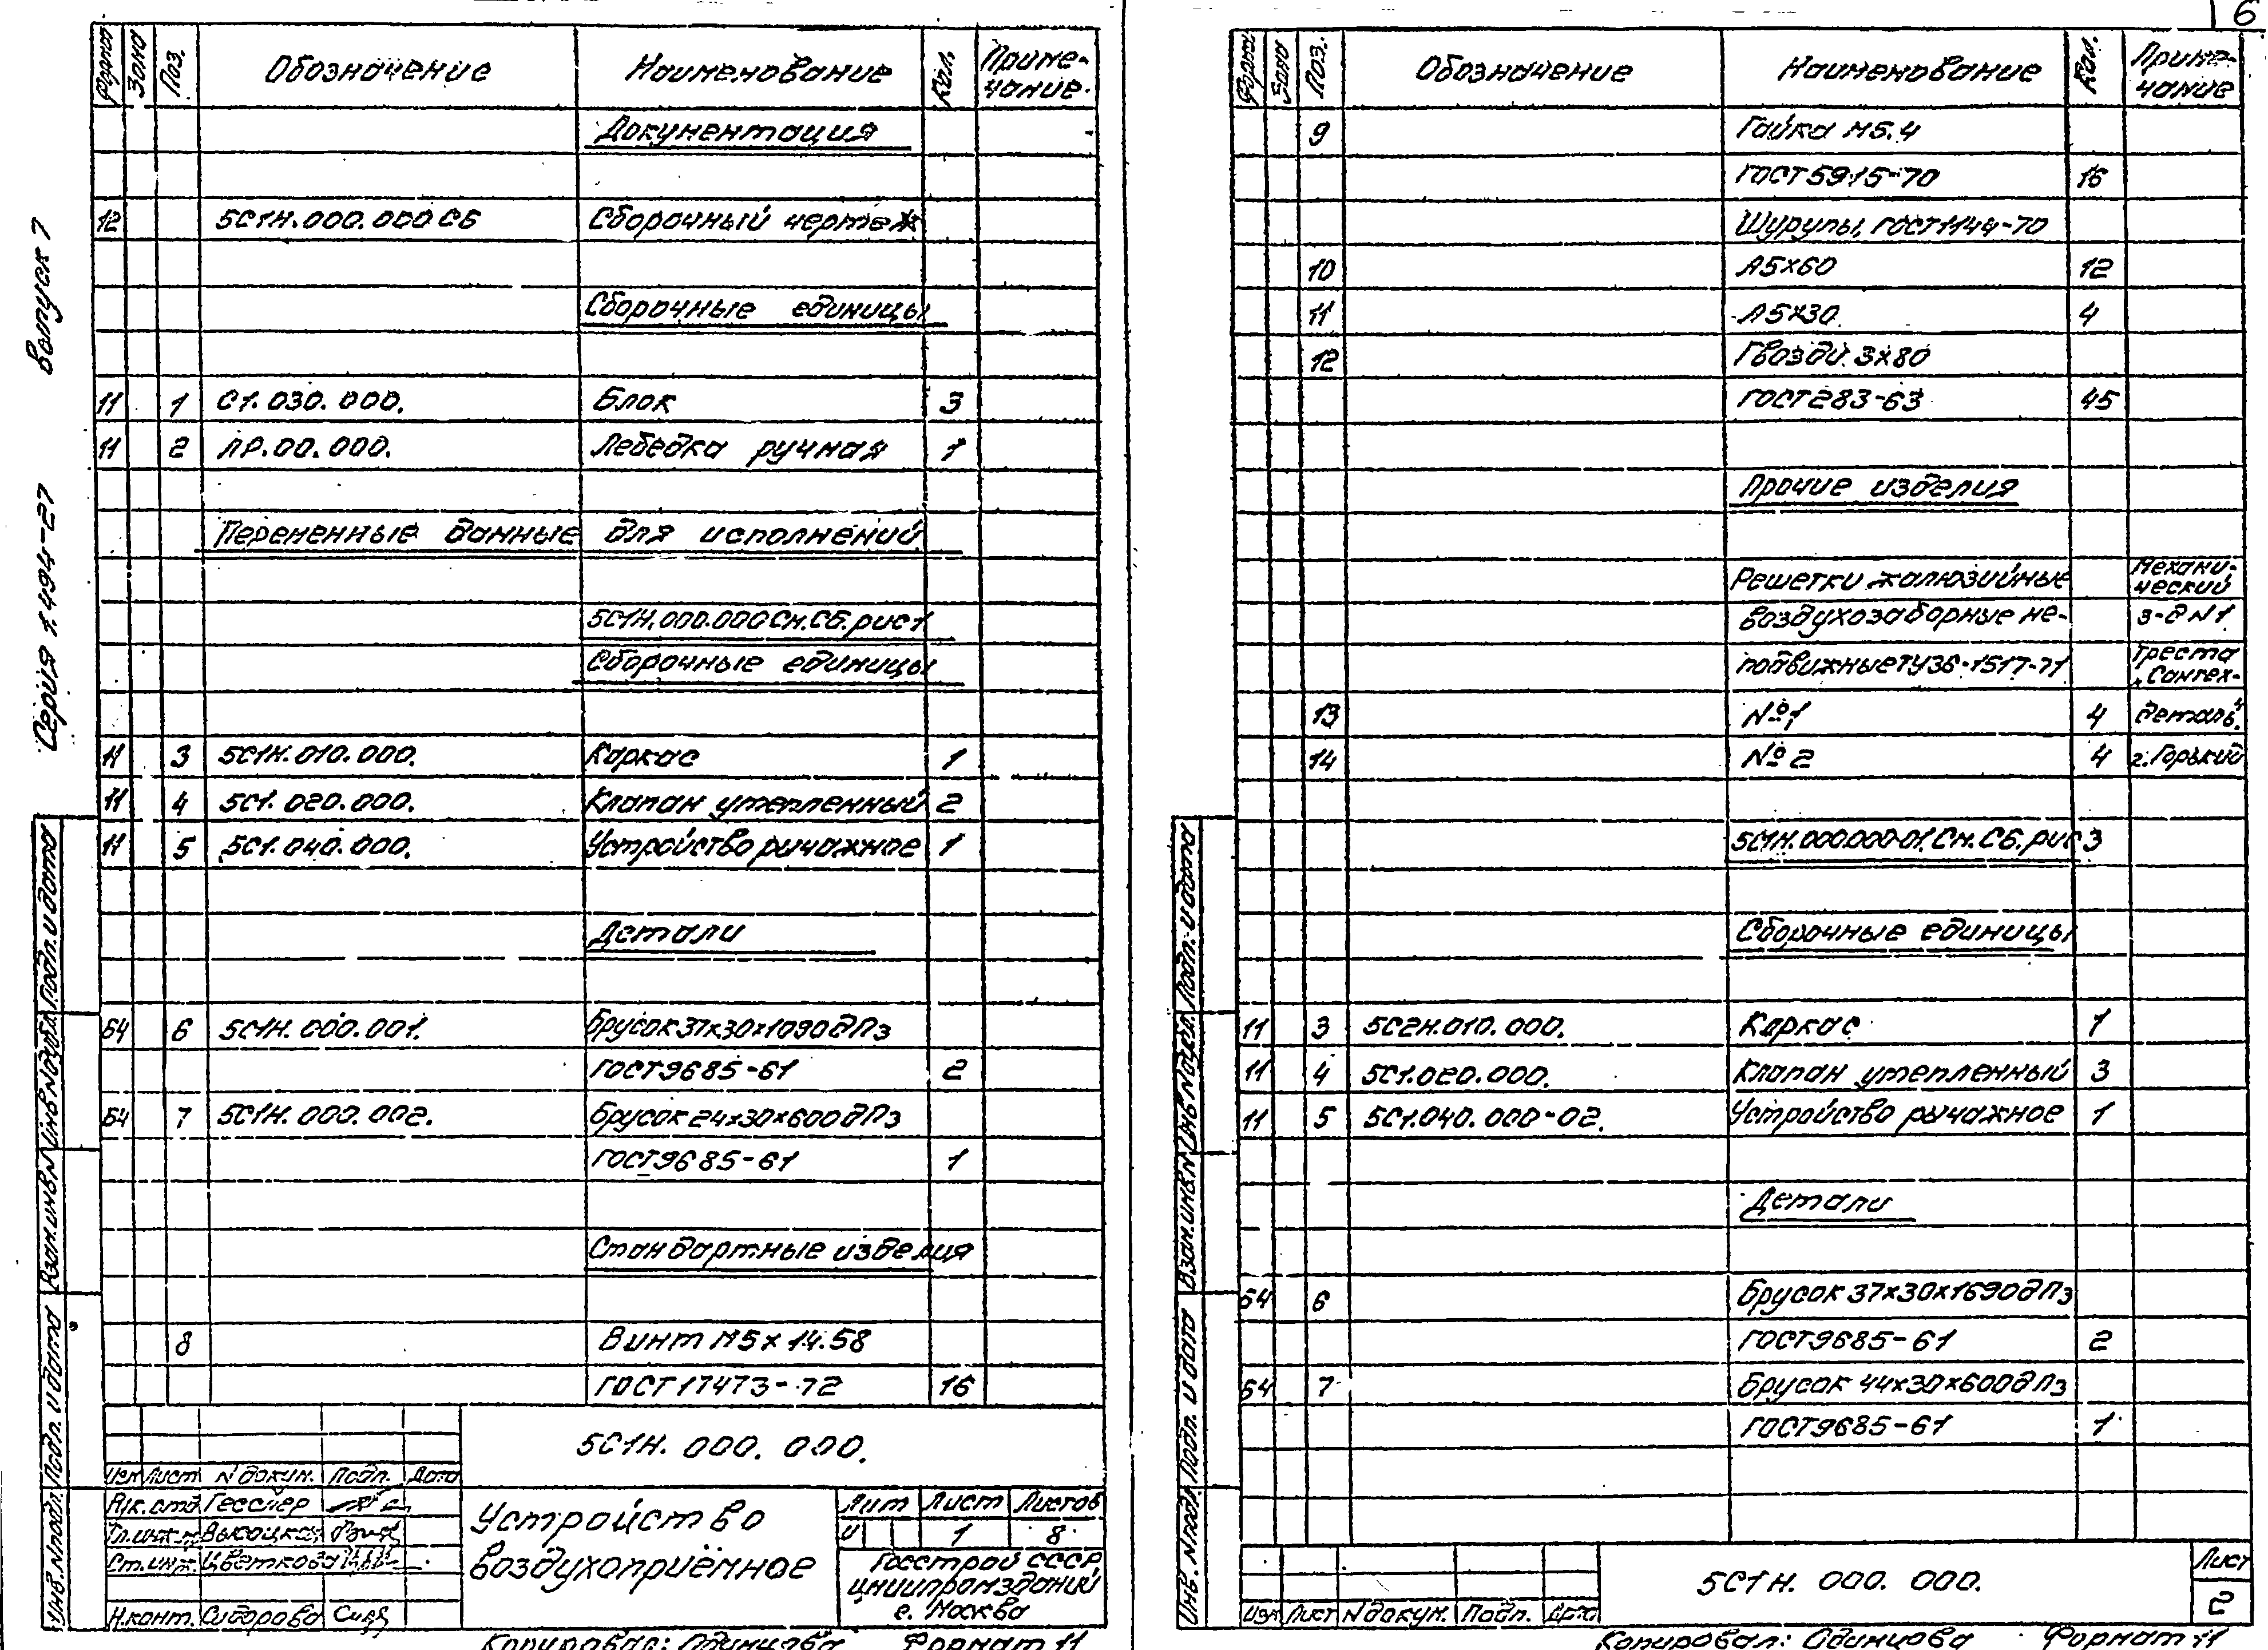 6
Выпуск 7
Серия 1.494-27
Формат Зона Поз. Обозначение Наименование Кол. Приме-
чание.
Документация
12 5С1Н.000.000 СБ Сборочный чертеж
Сборочные единицы
11 1 С1.030.000. Блок 3
11 2 ЛР.00.000. Лебедка ручная 1
Переменные данные для исполнений
5С1Н.000.000 См.СБ.рис1
Сборочные единицы
11 3 5С1Н.010.000. Каркас 1
11 4 5С1.020.000. Клапан утепленный 2
11 5 5С1.040.000. Устройство рычажное 1
Детали
БЧ 6 5С1Н.000.001. Брусок 37х30х1090дП3
ГОСТ9685-61 2
БЧ 7 5С1Н.000.002. Брусок 24х30х600дП3
ГОСТ9685-61 1
Стандартные изделия
8 Винт М5х14.58
ГОСТ17473-72 16
5С1Н.000.000.
Изм Лист N докум. Подп. Дата
Рук.отд. Гесслер
Гл.инж. Высоцкая
Ст.инж. Цветкова
Н.конт. Сидорова
Устройство
воздухоприёмное
Лит Лист Листов
И 1 8
Госстрой СССР
ЦНИИпромзданий
г. Москва
Копировал: Одинцова Формат 11
Инв.Nподл. Подп. и дата Взам.инв.N Инв.Nдубл. Подп. и дата
Формат Зона Поз. Обозначение Наименование Кол. Приме-
чание
9 Гайка М5.4
ГОСТ5915-70 16
Шурупы, ГОСТ1144-70
10 А5х60 12
11 А5х30 4
12 Гвозди 3х80
ГОСТ283-63 45
Прочие изделия
Решетки жалюзийные Механи-
ческий
воздухозаборные не- з-д N1
подвижные ТУ36-1517-71 треста
„Сантех-
13 №1 4 деталь“
14 №2 4 г.Горький
5С1Н.000.000-01.См.СБ.рис3
Сборочные единицы
11 3 5С2Н.010.000. Каркас 1
11 4 5С1.020.000. Клапан утепленный 3
11 5 5С1.040.000-02. Устройство рычажное 1
Детали
БЧ 6 Брусок 37х30х1690дП3
ГОСТ9685-61 2
БЧ 7 Брусок 44х30х600дП3
ГОСТ9685-61 1
5С1Н.000.000.
Лист
2
Изм Лист N докум. Подп. Дата
Копировал: Одинцова Формат 11
Инв.Nподл. Подп. и дата Взам.инв.N Инв.Nдубл. Подп. и дата